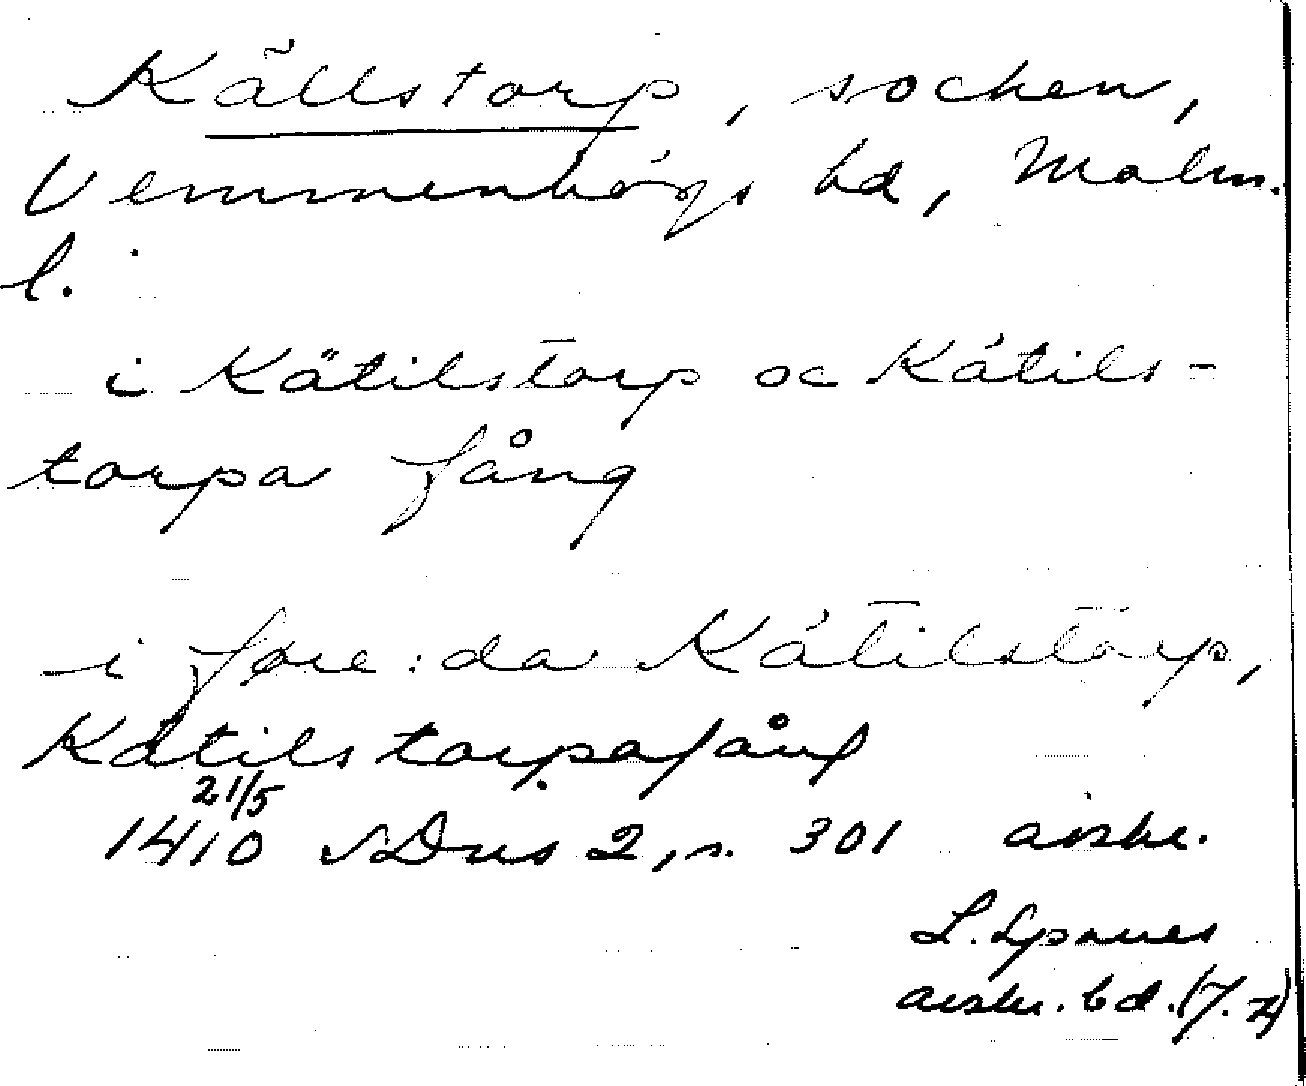 Källstorp, socken,
Vemmenhögs hd, Malm.
l.
i Kätilstorp oc Kätils-
torpa fång
i fore:da Kätilstorp,
Kätilstorpafång
21/5
1410 SDns 2, s. 301 avskr.
L. Ljponer
avskr. bd. (7.